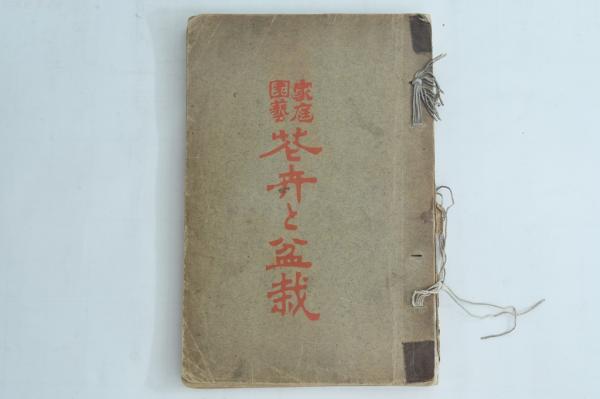 家庭
園藝
花卉と盆栽